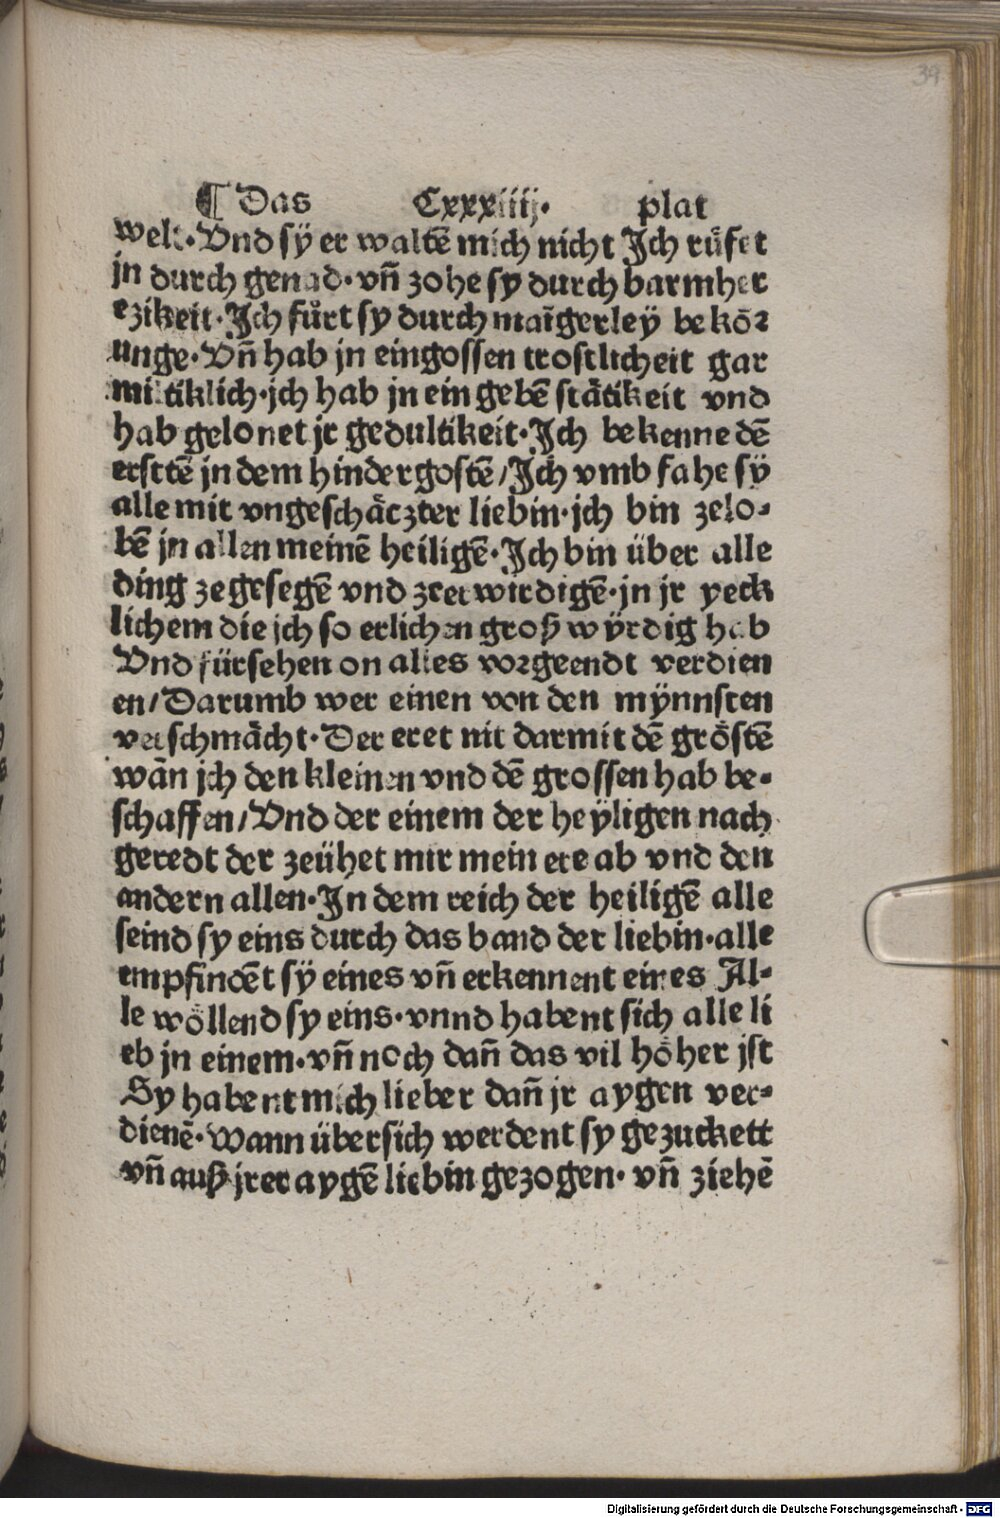 39
¶ Das Cxxxiiij· plat
welt·Vnd sÿ er waltē mich nicht Jch rüfet
jn durch genad·vn̄ zohe sy durch barmher
czikeit·Jch fůrt sy durch maīgerley bekōꝛ
unge·Vn̄ hab jn eingossen trostlicheit gar
miltiklich·jch hab jn ein gebē stätikeit vnd
hab gelonet jr gedultikeit·Jch bekenne dē
erstē jn dem hindergostē/Jch vmb fahe sÿ
alle mit vngeschäczter liebin·jch bin zelo⸗
bē jn allen meinē heiligē·Jch bin über alle
ding zegesegē vnd zeerwirdigē·jn jr yeck
lichem die jch so erlichen groß wÿrdig hab
Vnd fürsehen on alles voꝛgeendt verdien
en/Darumb wer einen von den mÿnnsten
verschmächt·Der eret nit darmit dē gröstē
wān jch den kleinen vnd dē grossen hab be⸗
schaffen/Vnd der einem der heÿligen nach
geredt der zeühet mir mein ere ab vnd den
andern allen·Jn dem reich der heiligē alle
seind sy eins durch das band der liebin·alle
empfindēt sÿ eines vn̄ erkennent eines Al⸗
le wöllend sy eins·vnnd habent sich alle li
eb jn einem·vn̄ noch dan̄ das vil höher jst
Sy habent mich lieber dan̄ jr aygen ver⸗
dienē·Wann übersich werdent sy gezuckett
vn̄ auß jrer aygē liebin gezogen·vn̄ ziehē
Digitalisierung gefördert durch die Deutsche Forschungsgemeinschaft - DFG